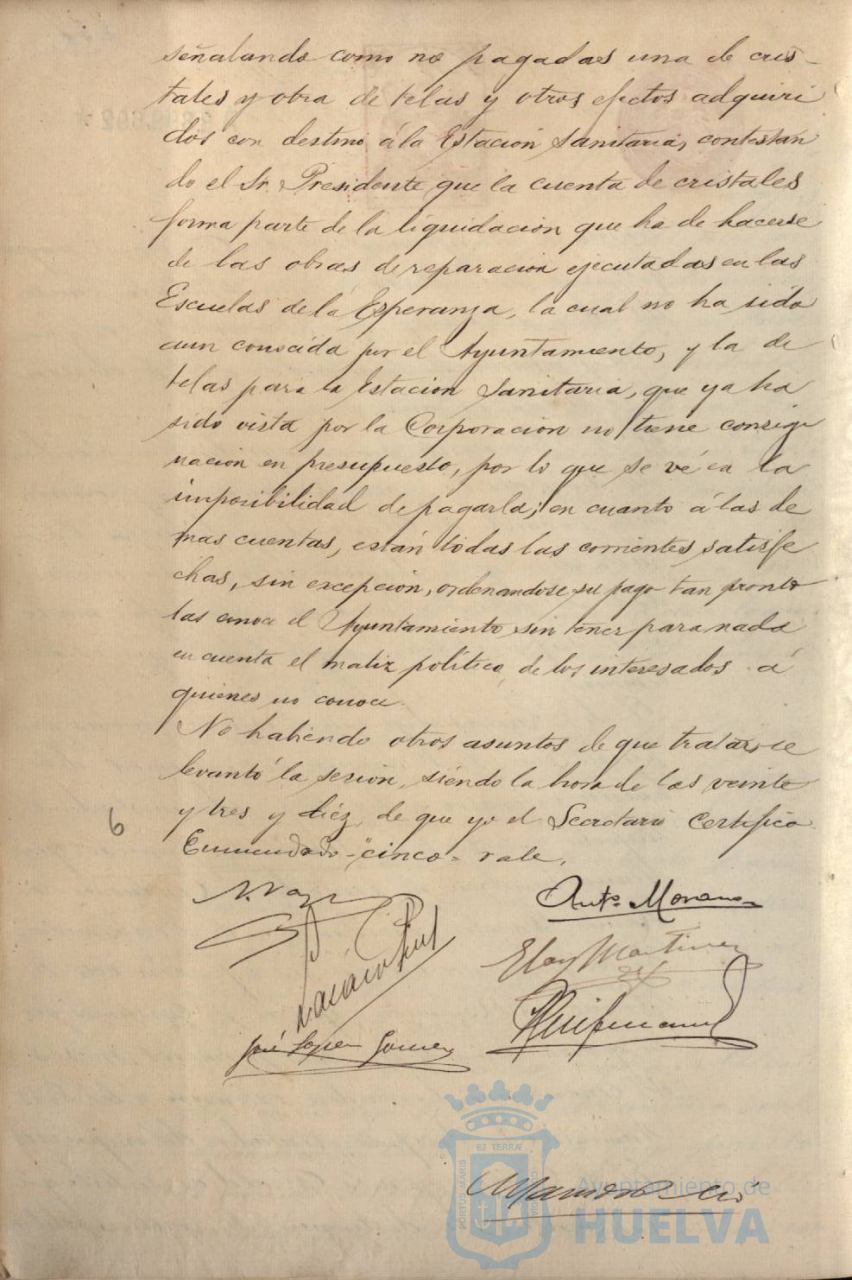 señalando como no pagadas una de cris-
tales y otra de telas y otros efectos adquiri
dos con destino á la Estacion Sanitaria, contestan
do el Sr. Presidente que la cuenta de cristales
forma parte de la liquidacion que ha de hacerse
de las obras de reparacion ejecutadas en las
Escuelas de la Esperanza, la cual no ha sido
aun conocida por el Ayuntamiento, y la de
telas para la Estacion Sanitaria, que ya ha
sido vista por la Corporacion no tiene consig
nacion en presupuesto, por lo que se vé en la
imposibilidad de pagarla; en cuanto á las de
mas cuentas, están todas las corrientes satisfe
chas, sin excepción, ordenandose su pago tan pronto
las conoce el Ayuntamiento sin tener para nada
en cuenta el matiz político de los interesados á
quienes no conoce.
No habiendo otros asuntos de que tratar se
levantó la sesion, siendo la hora de las veinte
y tres y diéz, de que yo el Secretario certifico
6
Enmendado-"cinco"-vale.
Antº Moreno
Eloy Martinez
José Lopez Gomez
Ayuntamiento de
HUELVA